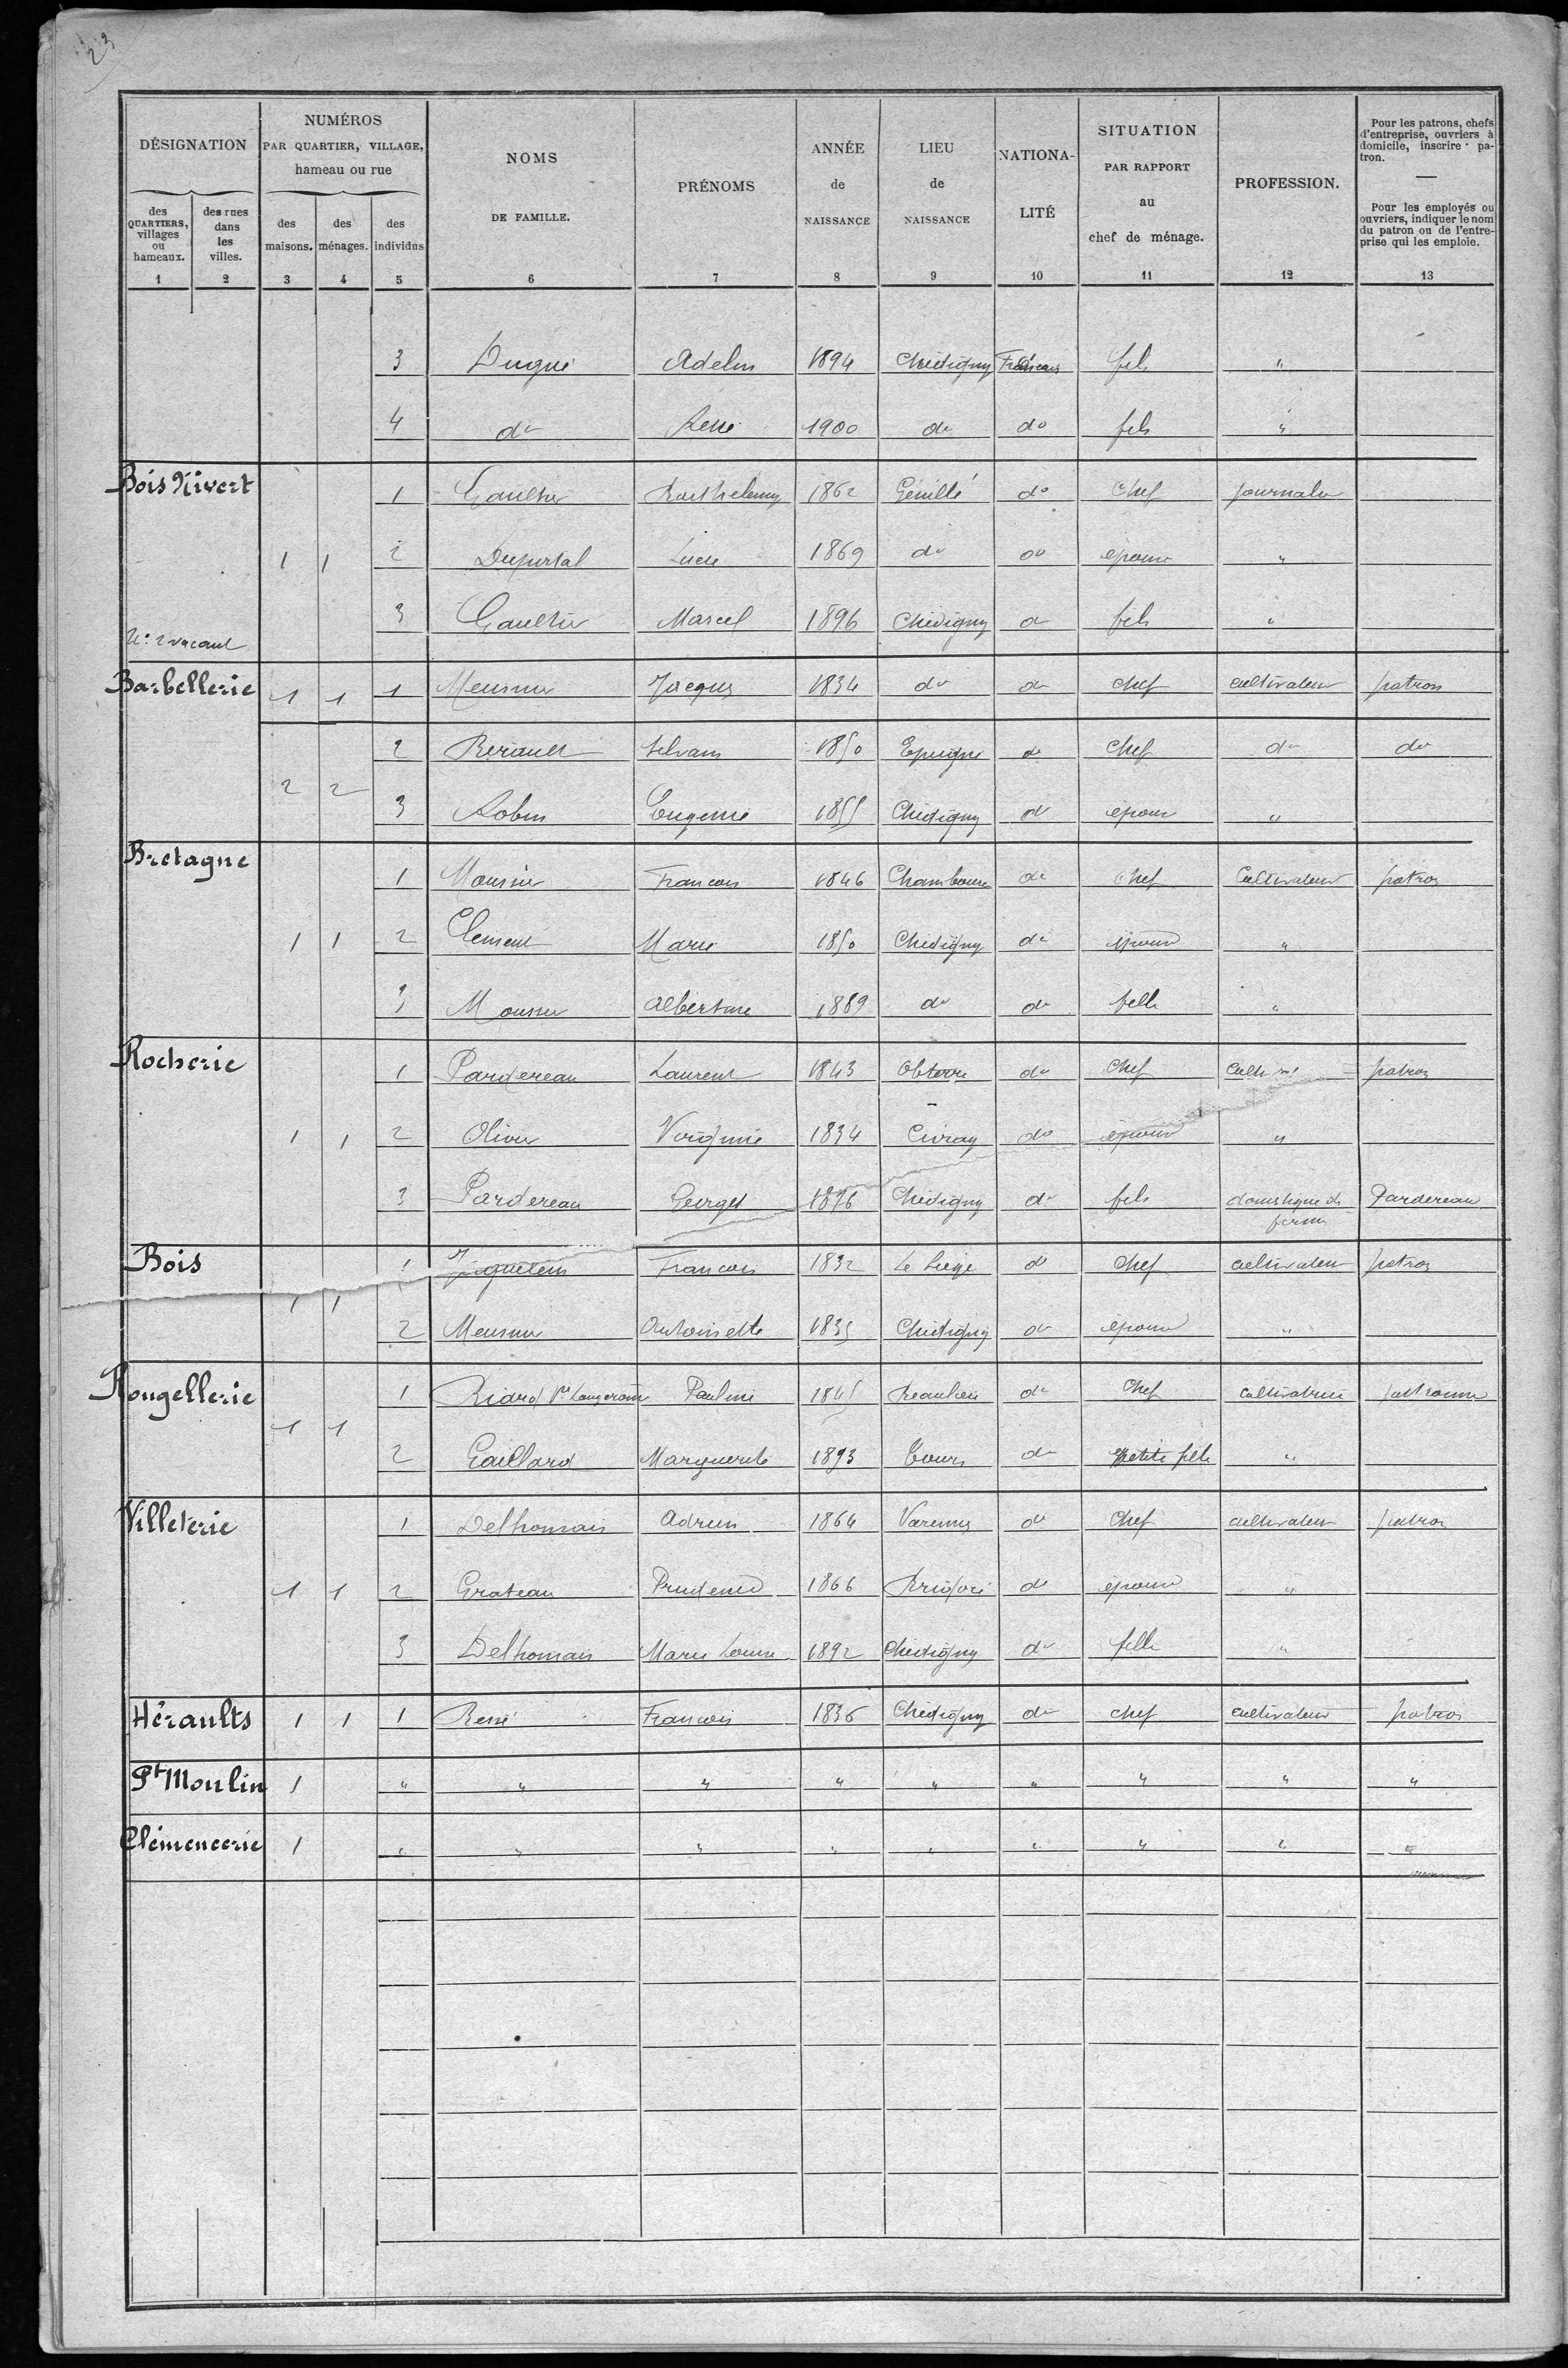 23
DÉSIGNATION
NUMÉROS PAR QUARTIER, VILLAGE, hameau ou rue
NOMS DE FAMILLE.
PRÉNOMS
ANNÉE de NAISSANCE
LIEU de NAISSANCE
NATIONALITÉ
SITUATION PAR RAPPORT au chef de ménage.
PROFESSION.
Pour les patrons, chefs d'entreprise, ouvriers à domicile, inscrire : patron.
—
Pour les employés ou ouvriers, indiquer le nom du patron ou de l'entreprise qui les emploie.
des QUARTIERS, villages ou hameaux.
des rues dans les villes.
des maisons.
des ménages.
des individus
1 2 3 4 5 6 7 8 9 10 11 12 13
3 Dugué Adelin 1894 Chédigny Français fils "
4 do René 1900 do do fils "
Bois Nivert
1 Gaultier Barthelemy 1862 Génillé do chef journalier
1 1 2 Duportal Lucie 1869 do do épouse "
3 Gaultier Marcel 1896 Chédigny do fils "
No 2 vacant
Barbellerie 1 1 1 Meusnier Jacques 1834 do do chef cultivateur patron
2 2 2 Silvain 1850 Epeigné do chef do do
3 Robin Eugenie 1855 Chédigny do epouse "
Bretagne
1 Mousnier Francois 1846 Chambourg do chef Cultivateur patron
1 1 2 Clement Marie 1850 Chedigny do épouse "
3 Mousnier Albertine 1889 do do fille "
Rocherie
1 Pardereau Laurent 1843 do chef patron
1 1 2 Olivier Virginie 1834 Civray do épouse "
3 Pardereau Georges 1876 Chédigny do fils domestique de ferme Pardereau
Bois
1 1 1 Francois 1832 Le Liège do chef cultivateur patron
2 Meusnier Antoinette 1835 Chédigny do épouse "
Rougellerie
1 1 1 Ve Pauline 1845 Beaulieu do chef cultivatrice patronne
2 Gaillard Marguerite 1893 Tours do petite fille "
Villeterie
1 Delhomais Adrien 1864 Varennes do chef cultivateur patron
1 1 2 Grateau Prudence 1866 do épouse "
3 Delhomais Marie Louise 1892 Chedigny do fille "
Hêraults 1 1 1 René Francois 1836 Chedigny do chef cultivateur patron
Pt Moulin 1 " " " " " " " " "
Clémencerie 1 " " " " " " " " "